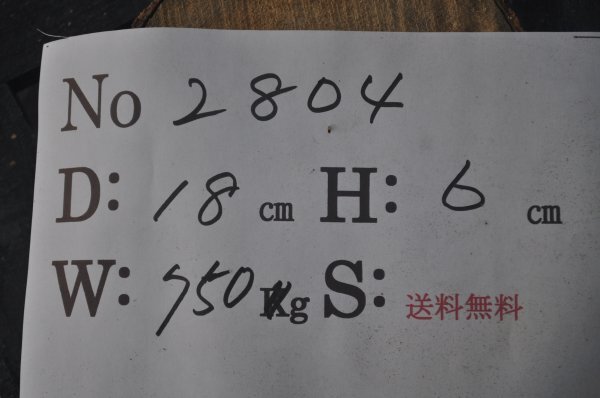 No 2804
D: 18 cm H: 6 cm
W: 750 g S: 送料無料